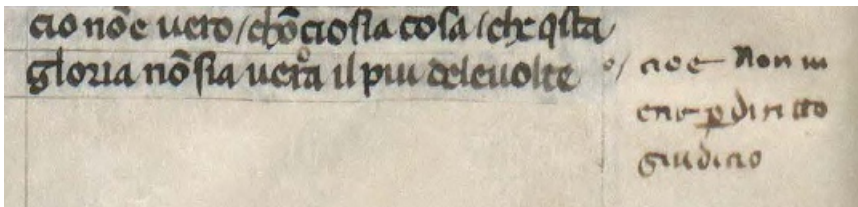 cio nōe uero / chōciosia cosa / che q̄sta
gloria nō sia uera il piu deleuolte
o/ cioe Non ui
ene ꝑ diritto
giudicio